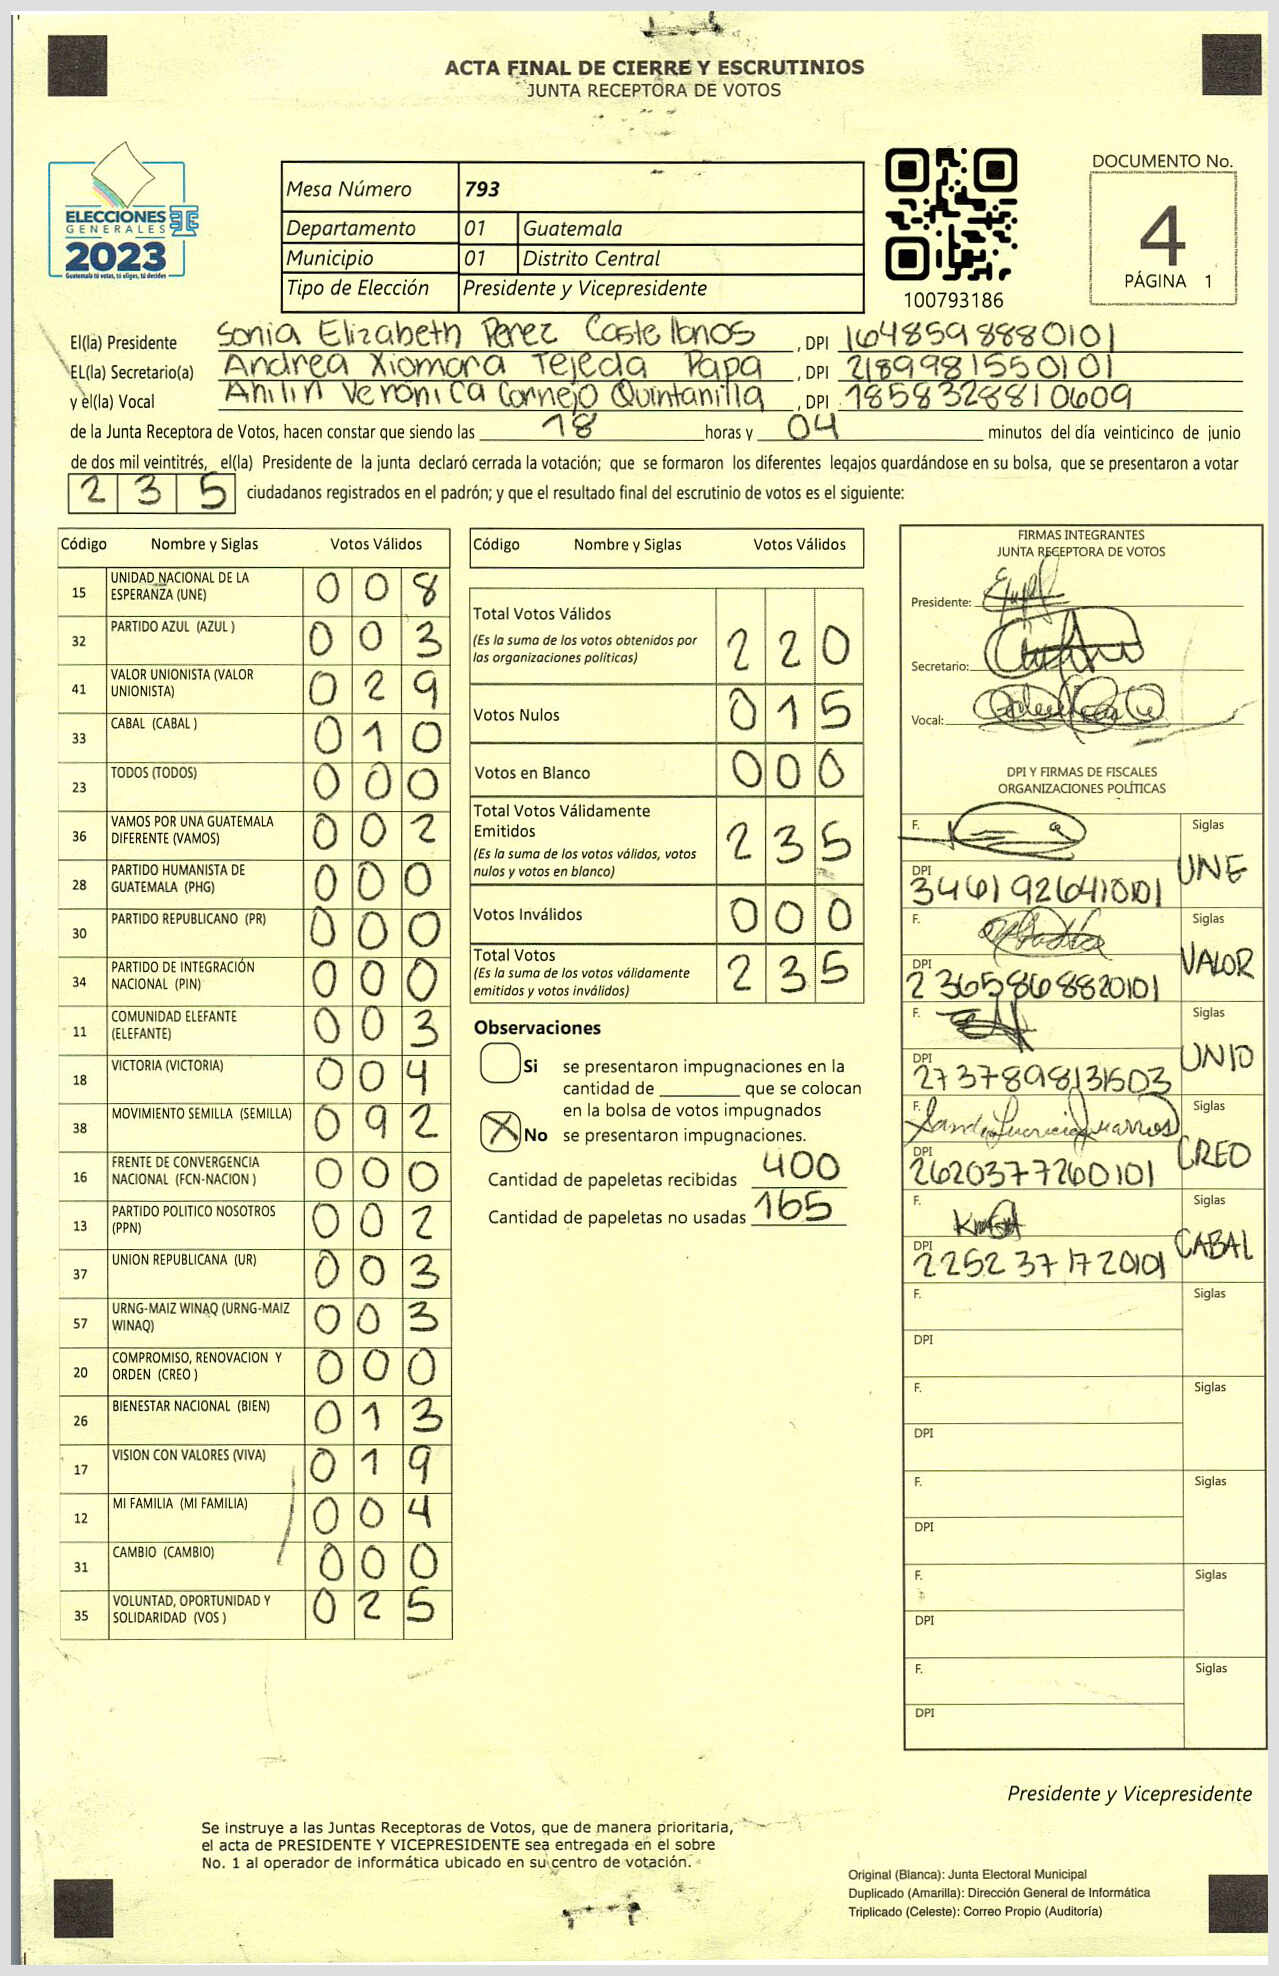 ACTA FINAL DE CIERRE Y ESCRUTINIOS
JUNTA RECEPTORA DE VOTOS
ELECCIONES
GENERALES
2023
Guatemala tú votas, tú eliges, tú decides
Mesa Número 793
Departamento 01 Guatemala
Municipio 01 Distrito Central
Tipo de Elección Presidente y Vicepresidente
100793186
DOCUMENTO No.
4
PÁGINA 1
El(la) Presidente Sonia Elizabeth Perez Castellanos, DPI 1648598880101
EL(la) Secretario(a) Andrea Xiomara Tejeda Papa, DPI 2189981550101
y el(la) Vocal Ahilin Verónica Cornejo Quintanilla, DPI 1858328810609
de la Junta Receptora de Votos, hacen constar que siendo las 18 horas y 04 minutos del día veinticinco de junio
de dos mil veintitrés, el(la) Presidente de la junta declaró cerrada la votación; que se formaron los diferentes legajos guardándose en su bolsa, que se presentaron a votar
235 ciudadanos registrados en el padrón; y que el resultado final del escrutinio de votos es el siguiente:
Código Nombre y Siglas Votos Válidos
15 UNIDAD NACIONAL DE LA ESPERANZA (UNE) 008
32 PARTIDO AZUL (AZUL ) 003
41 VALOR UNIONISTA (VALOR UNIONISTA) 029
33 CABAL (CABAL ) 010
23 TODOS (TODOS) 000
36 VAMOS POR UNA GUATEMALA DIFERENTE (VAMOS) 002
28 PARTIDO HUMANISTA DE GUATEMALA (PHG) 000
30 PARTIDO REPUBLICANO (PR) 000
34 PARTIDO DE INTEGRACIÓN NACIONAL (PIN) 000
11 COMUNIDAD ELEFANTE (ELEFANTE) 003
18 VICTORIA (VICTORIA) 004
38 MOVIMIENTO SEMILLA (SEMILLA) 092
16 FRENTE DE CONVERGENCIA NACIONAL (FCN-NACION ) 000
13 PARTIDO POLITICO NOSOTROS (PPN) 002
37 UNION REPUBLICANA (UR) 003
57 URNG-MAIZ WINAQ (URNG-MAIZ WINAQ) 003
20 COMPROMISO, RENOVACION Y ORDEN (CREO ) 000
26 BIENESTAR NACIONAL (BIEN) 013
17 VISION CON VALORES (VIVA) 019
12 MI FAMILIA (MI FAMILIA) 004
31 CAMBIO (CAMBIO) 000
35 VOLUNTAD, OPORTUNIDAD Y SOLIDARIDAD (VOS ) 025
Código Nombre y Siglas Votos Válidos
Total Votos Válidos 220
(Es la suma de los votos obtenidos por
las organizaciones políticas)
Votos Nulos 015
Votos en Blanco 000
Total Votos Válidamente
Emitidos 235
(Es la suma de los votos válidos, votos
nulos y votos en blanco)
Votos Inválidos 000
Total Votos 235
(Es la suma de los votos válidamente
emitidos y votos inválidos)
Observaciones
Si se presentaron impugnaciones en la
cantidad de ________ que se colocan
en la bolsa de votos impugnados
X No se presentaron impugnaciones.
Cantidad de papeletas recibidas 400
Cantidad de papeletas no usadas 165
FIRMAS INTEGRANTES
JUNTA RECEPTORA DE VOTOS
Presidente:
Secretario:
Vocal:
DPI Y FIRMAS DE FISCALES
ORGANIZACIONES POLÍTICAS
F. Siglas UNE
DPI 3461926410101
F. Siglas VALOR
DPI 2365868820101
F. Siglas UNIO
DPI 2737898131503
F. Siglas CREO
DPI 2620377260101
F. Siglas CABAL
DPI 2252371720101
F. Siglas
DPI
F. Siglas
DPI
F. Siglas
DPI
F. Siglas
DPI
F. Siglas
DPI
Presidente y Vicepresidente
Se instruye a las Juntas Receptoras de Votos, que de manera prioritaria,
el acta de PRESIDENTE Y VICEPRESIDENTE sea entregada en el sobre
No. 1 al operador de informática ubicado en su centro de votación.
Original (Blanca): Junta Electoral Municipal
Duplicado (Amarilla): Dirección General de Informática
Triplicado (Celeste): Correo Propio (Auditoría)